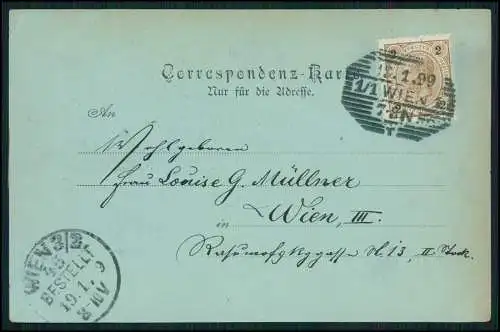 2 2
Correspondenz-Karte
Nur für die Adresse.
1.99
1/1 WIEN
An
Wohlgeboren
Frau Louise G. Müllner
in Wien, III.
Rasumofskygasse N. 13, II Stock.
WIEN 3/3
BESTELLT
19.1. 9
8 NV